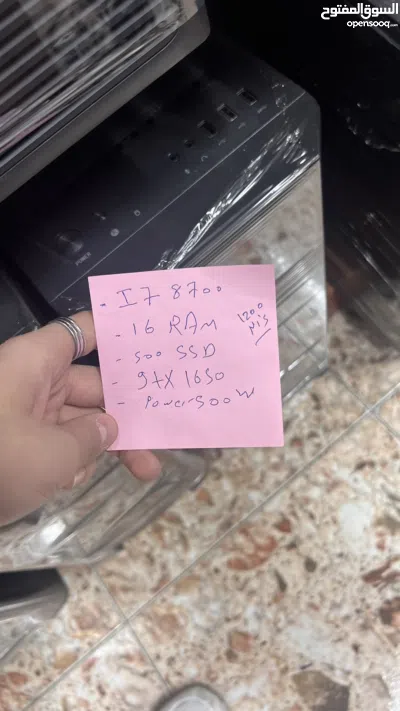 السوق المفتوح
opensooq.com
- I7 8700
- 16 RAM
- 500 SSD
- gtX 1650
- Power 500W
1200
NiS